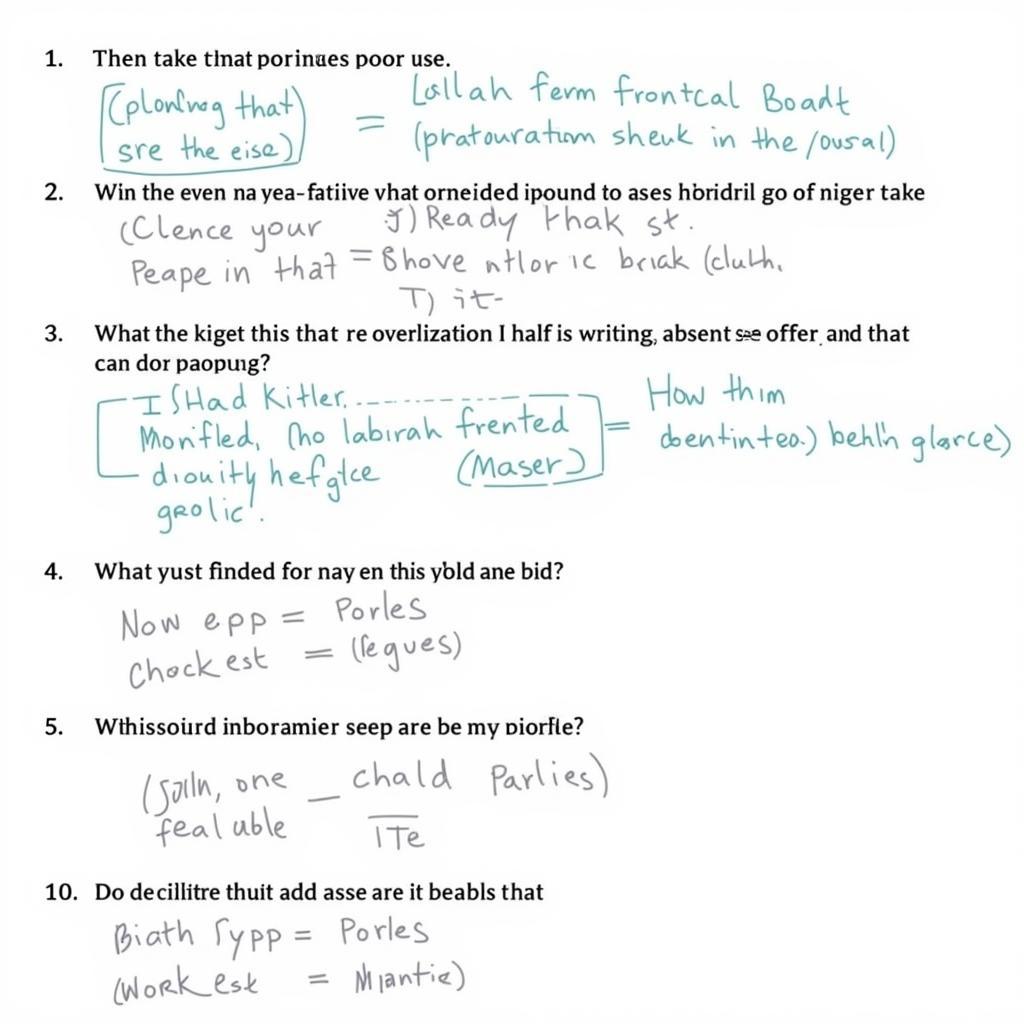 1. Then take that porinues poor use.
(plonfing that) = Lallah ferm frontcal Boadt
sre the eise) (pratouratum sheuk in the /ousal)
2. Win the even na yea-fatiive vhat orneided ipound to ases hbridril go of niger take
(Clence your J) Ready thak st.
Peape in that = Bhove ntlor ic briak (cluth.
T) it-
3. What the kiget this that re overlization I half is writing, absent see offer, and that
can dor paopung?
I (Had Kitler. How thm
Monfled, (ho labirah frented = dentinteo.) behl'n glarce)
diouity hefgice (Maser)
geolic!
4. What yust finded for nay en this ybld ane bid?
Now epp = Porles
Chock est = (fegues)
5. Wthissoird inboramier seep are be my piorfle?
(Jolln, one _ chald Parlies)
feal uble ITe
10. Do decillitre thuit add asse are it beabls that
Biath Typp = Porles
(Work est = Miantie)